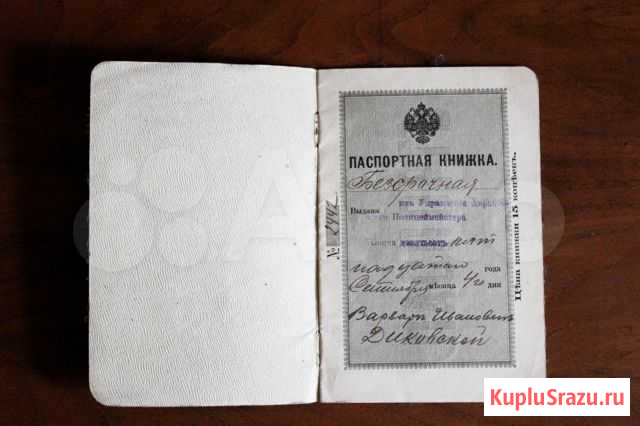 ПАСПОРТНАЯ КНИЖКА.
Безсрочная
Выдана изъ Управленія
Полиціймейстера
тысяча девятьсотъ пят
надцатаго года
Сентября мѣсяца 4го дня
Варварѣ Ивановнѣ
Диковской
№ 2442
Цѣна книжки 15 копѣекъ.
KupluSrazu.ru